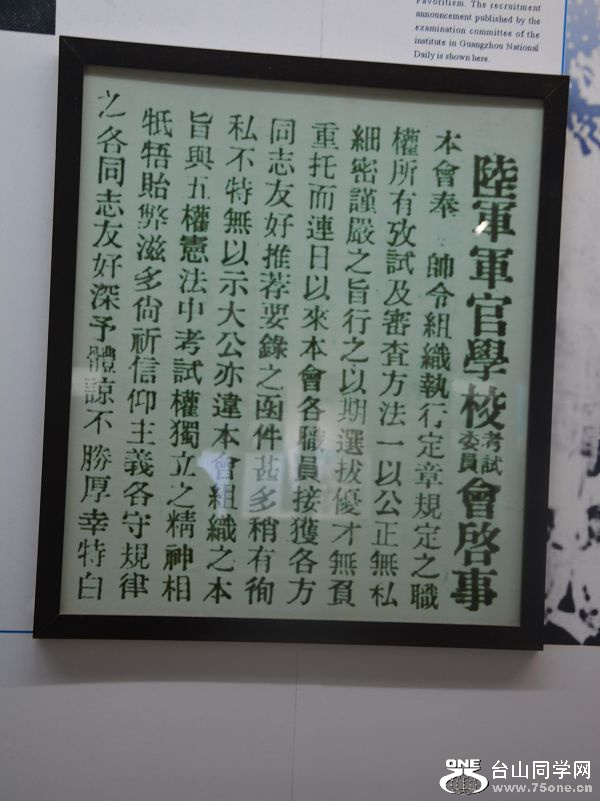 Favoritism. The recruitment
announcement published by the
examination committee of the
institute in Guangzhou National
Daily is shown here.
陸軍軍官學校考試委員會啓事
本會奉 帥令組織執行定章規定之職
權所有攷試及審查方法一以公正無私
細密謹嚴之旨行之以期選拔優才無負
重托而連日以來本會各職員接獲各方
同志友好推荐要錄之函件甚多稍有徇
私不特無以示大公亦違本會組織之本
旨與五權憲法中考試權獨立之精神相
牴牾貽弊滋多尙祈信仰主義各守規律
之各同志友好深予體諒不勝厚幸特白
ONE
台山同学网
www.75one.cn